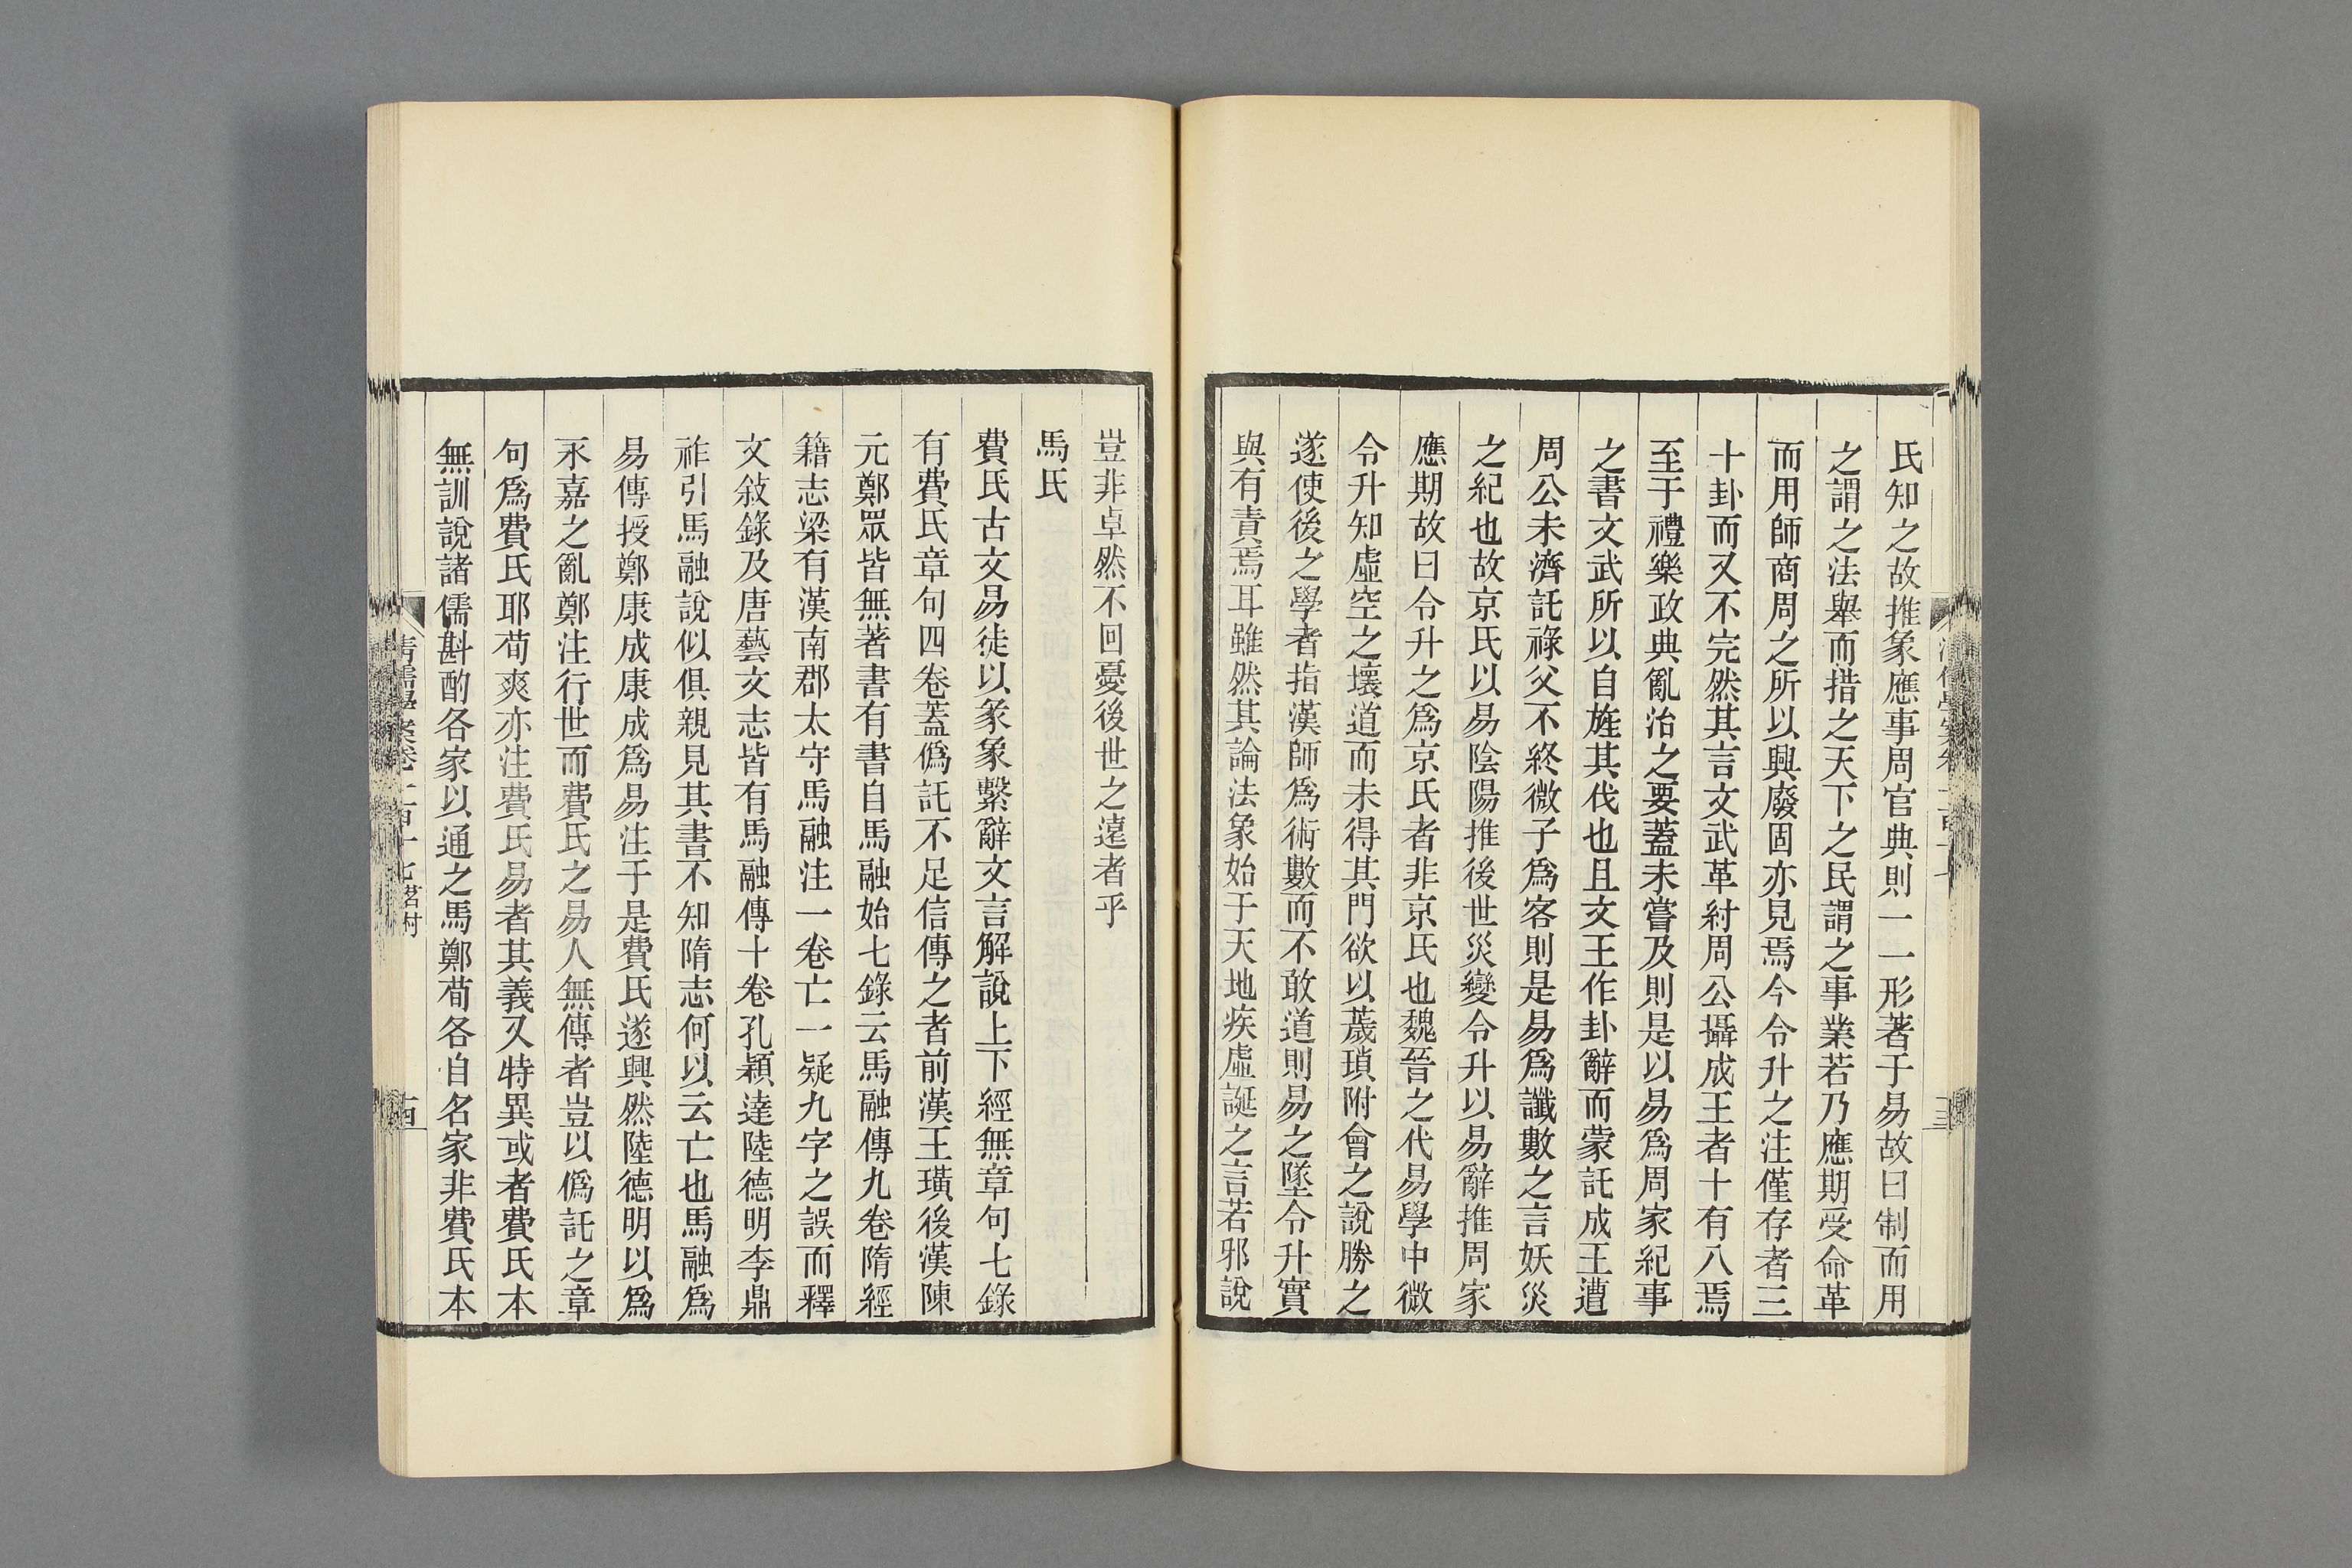 氏知之故推象應事周官典則一一形著于易故曰制而用
之謂之法舉而措之天下之民謂之事業若乃應期受命革
而用師商周之所以興廢固亦見焉今令升之注僅存者三
十卦而又不完然其言文武革紂周公攝成王者十有八焉
至于禮樂政典亂治之要蓋未嘗及則是以易爲周家紀事
之書文武所以自旌其伐也且文王作卦辭而蒙託成王遭
周公未濟託祿父不終微子爲客則是易爲讖數之言妖災
之紀也故京氏以易陰陽推後世災變令升以易辭推周家
應期故曰令升之爲京氏者非京氏也魏晉之代易學中微
令升知虛空之壞道而未得其門欲以蕆瑣附會之說勝之
遂使後之學者指漢師爲術數而不敢道則易之墜令升實
與有責焉耳雖然其論法象始于天地疾虛誕之言若邪說
豈非卓然不回憂後世之遠者乎
馬氏
費氏古文易徒以彖象繫辭文言解說上下經無章句七錄
有費氏章句四卷蓋僞託不足信傳之者前漢王璜後漢陳
元鄭眾皆無著書有書自馬融始七錄云馬融傳九卷隋經
籍志梁有漢南郡太守馬融注一卷亡一疑九字之誤而釋
文敍錄及唐藝文志皆有馬融傳十卷孔穎達陸德明李鼎
祚引馬融說似俱親見其書不知隋志何以云亡也馬融爲
易傳授鄭康成康成爲易注于是費氏遂興然陸德明以爲
永嘉之亂鄭注行世而費氏之易人無傳者豈以僞託之章
句爲費氏耶荀爽亦注費氏易者其義又特異或者費氏本
無訓說諸儒斟酌各家以通之馬鄭荀各自名家非費氏本
清儒學案卷一百十七 茗柯
十四